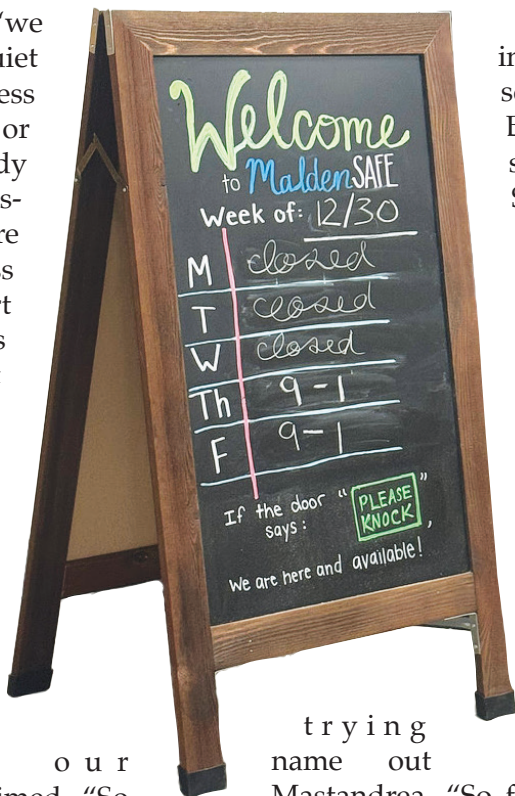 “we
or
Welcome
to Malden SAFE
Week of: 12/30
M closed
T closed
W closed
Th 9-1
F 9-1
If the door says: “PLEASE KNOCK”,
We are here and available!
our
“So
trying
name out
Mastandrea. “So